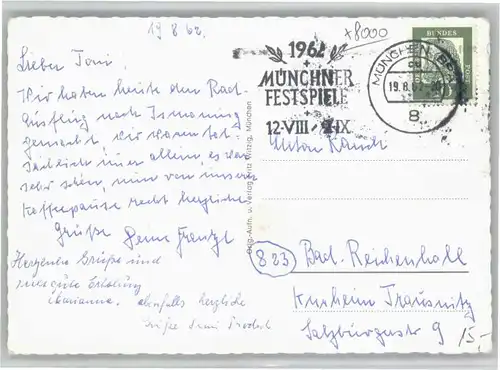 19 8 62.
+8000
Lieber Toni.
Wir haben heute den Rad-
ausflug nach Ismaning
gemacht, wir waren tat-
sächlich immer allein, es war
sehr schön, nun von unserer
Kaffeepause recht herzliche
Grüße Deine
Herzliche Grüße und
gute Erholung
Marianne. ebenfalls herzliche
Grüße
Orig.-Aufn. u. Verlag Fritz Witzig, München
1962
MÜNCHNER
FESTSPIELE
12·VIII / 9·IX
MÜNCHEN BPA
19.8.62
8
BUNDES
POST
Anton
823 Bad. Reichenhall
Kurheim Trausnitz
Salzburgerstr 9
15,-